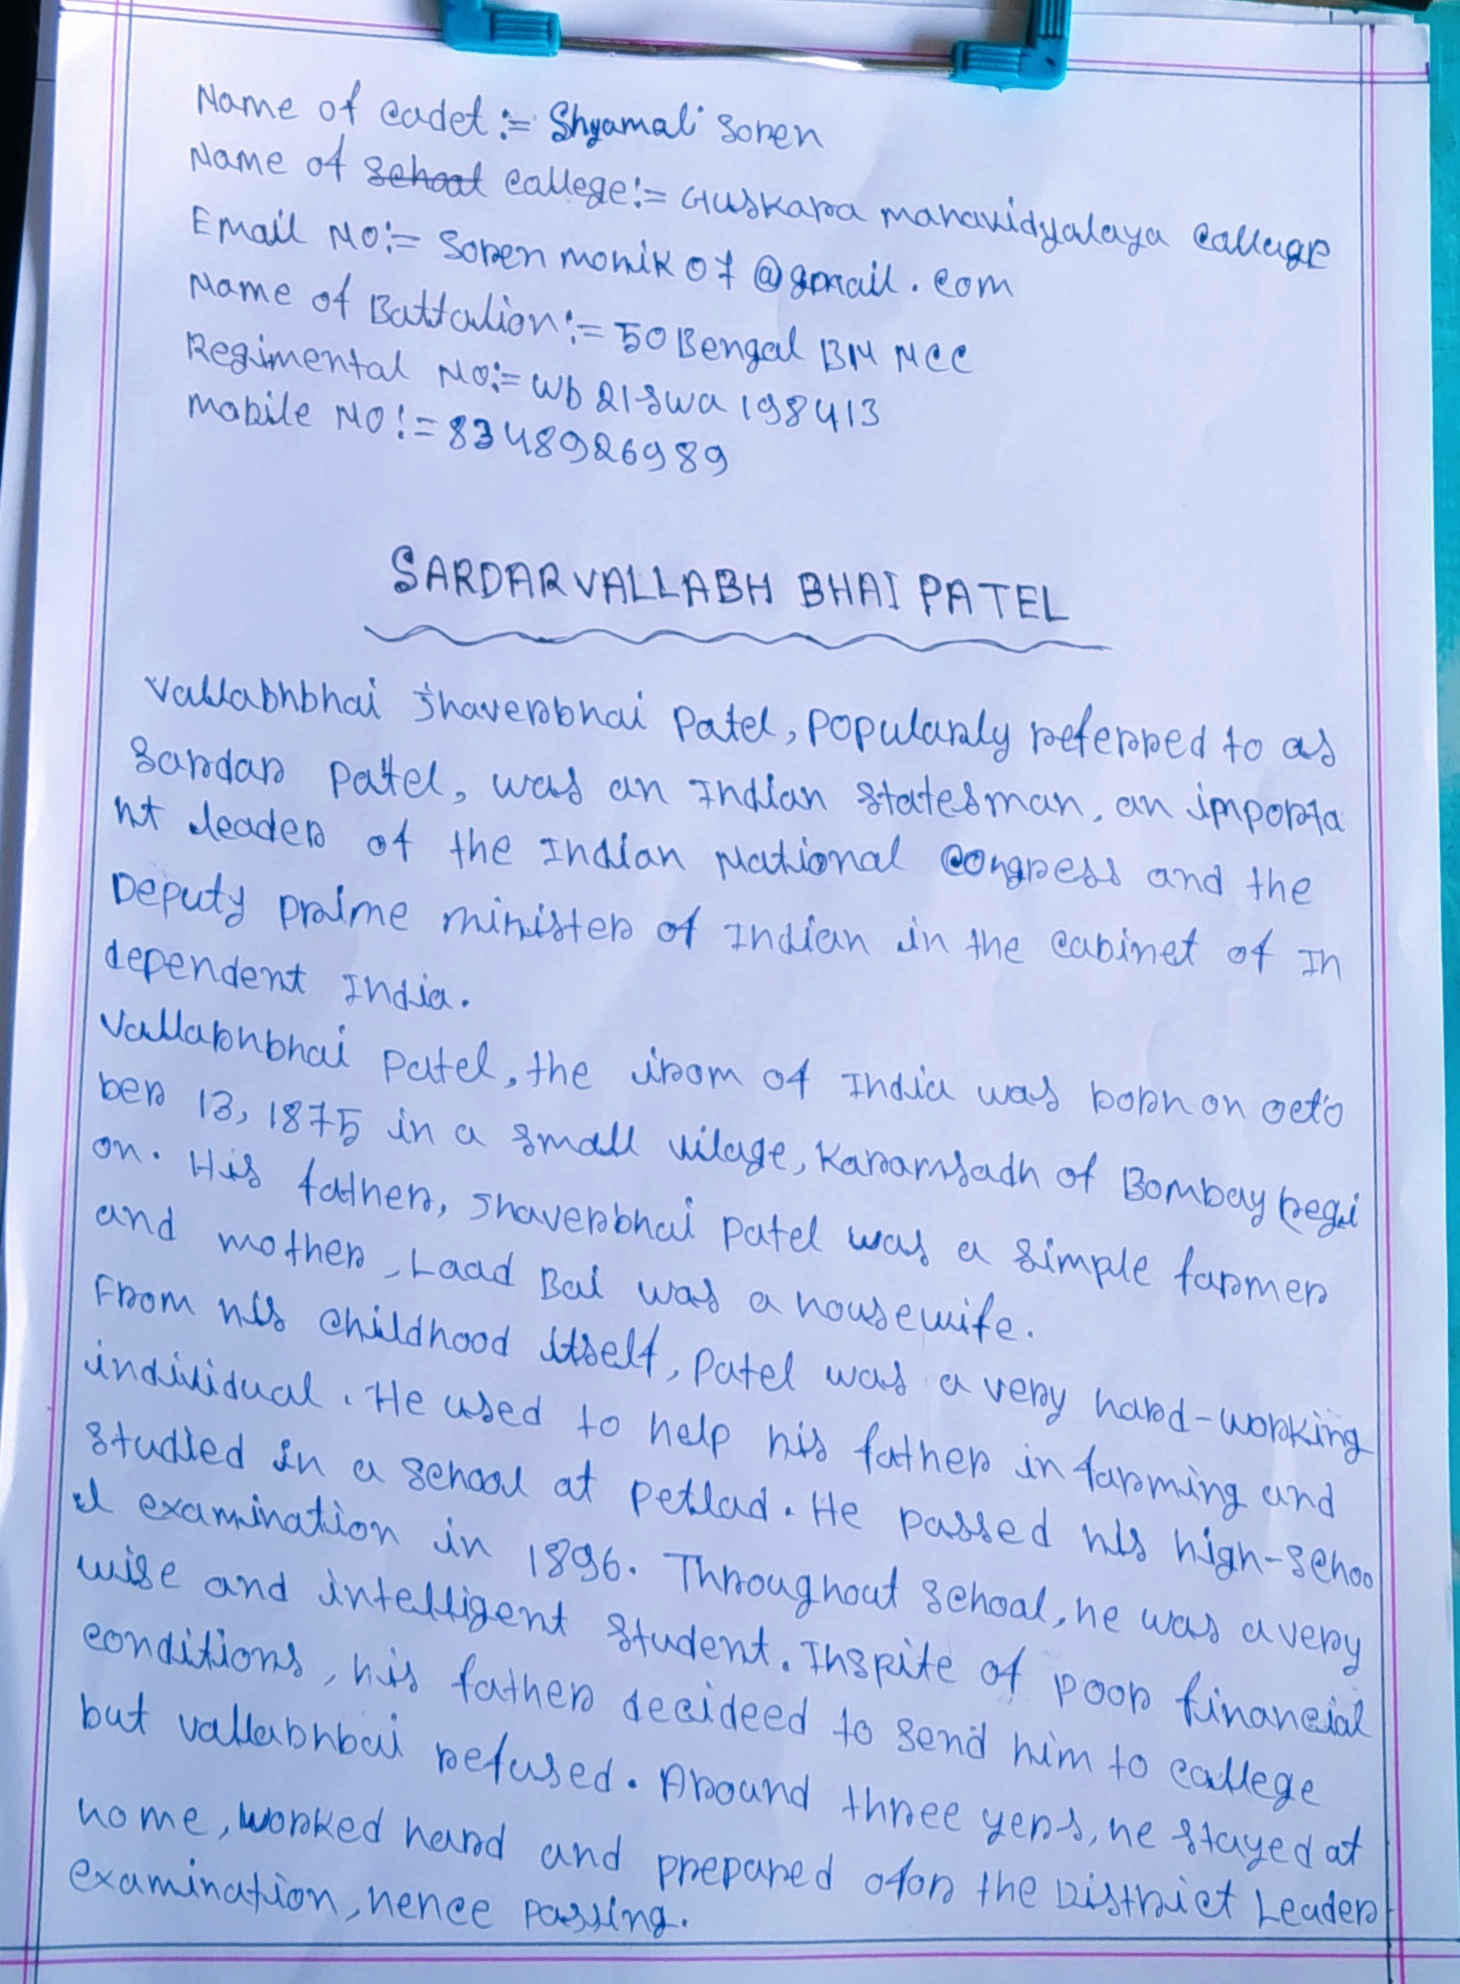 Name of cadet := Shyamali Soren
Name of School College := Guskara mahavidyalaya Callege
Email NO := Sorenmonik07@gmail.com
Name of Battalion := 50 Bengal BN NCC
Regimental NO := Wb21swa198413
Mobile NO := 8348926989
SARDAR VALLABH BHAI PATEL
Vallabhbhai Jhaverbhai Patel, Popularly referred to as
Sardar Patel, was an Indian statesman, an importa
nt leader of the Indian National Congress and the
Deputy prime minister of Indian in the cabinet of In
dependent India.
Vallabhbhai Patel, the irom of India was born on octo
ber 13, 1875 in a small vilage, Karamsadh of Bombay regi
on. His father, Jhaverbhai Patel was a simple farmer
and mother, Laad Bai was a housewife.
From his childhood itself, Patel was a very hard-working
individual. He used to help his father in farming and
studied in a school at Petlad. He passed his high-schoo
l examination in 1896. Throughout school, he was a very
wise and intelligent student. Inspite of poor financial
conditions, his father decideed to send him to callege
but vallabhbai refused. Around three yers, he stayed at
home, worked hard and prepared ofor the District Leader
examination, hence passing.